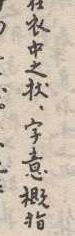 在衣中之狀、字意概指